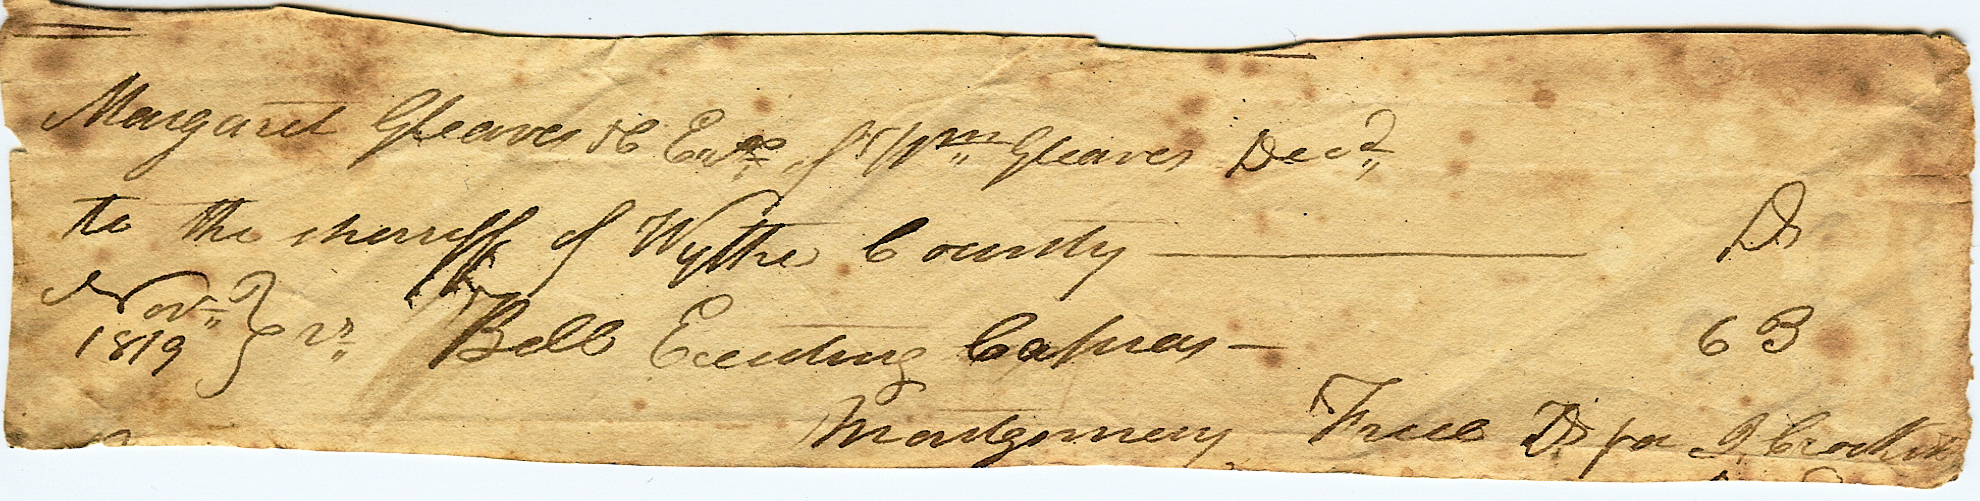 Margaret Gleaves &C Exrs of Wm Gleaves Decd
to the sherriff of Wythe County Dr
Novr 1819 } vs Bell Executing Capias 63
Montgomery True D for J. Crockett